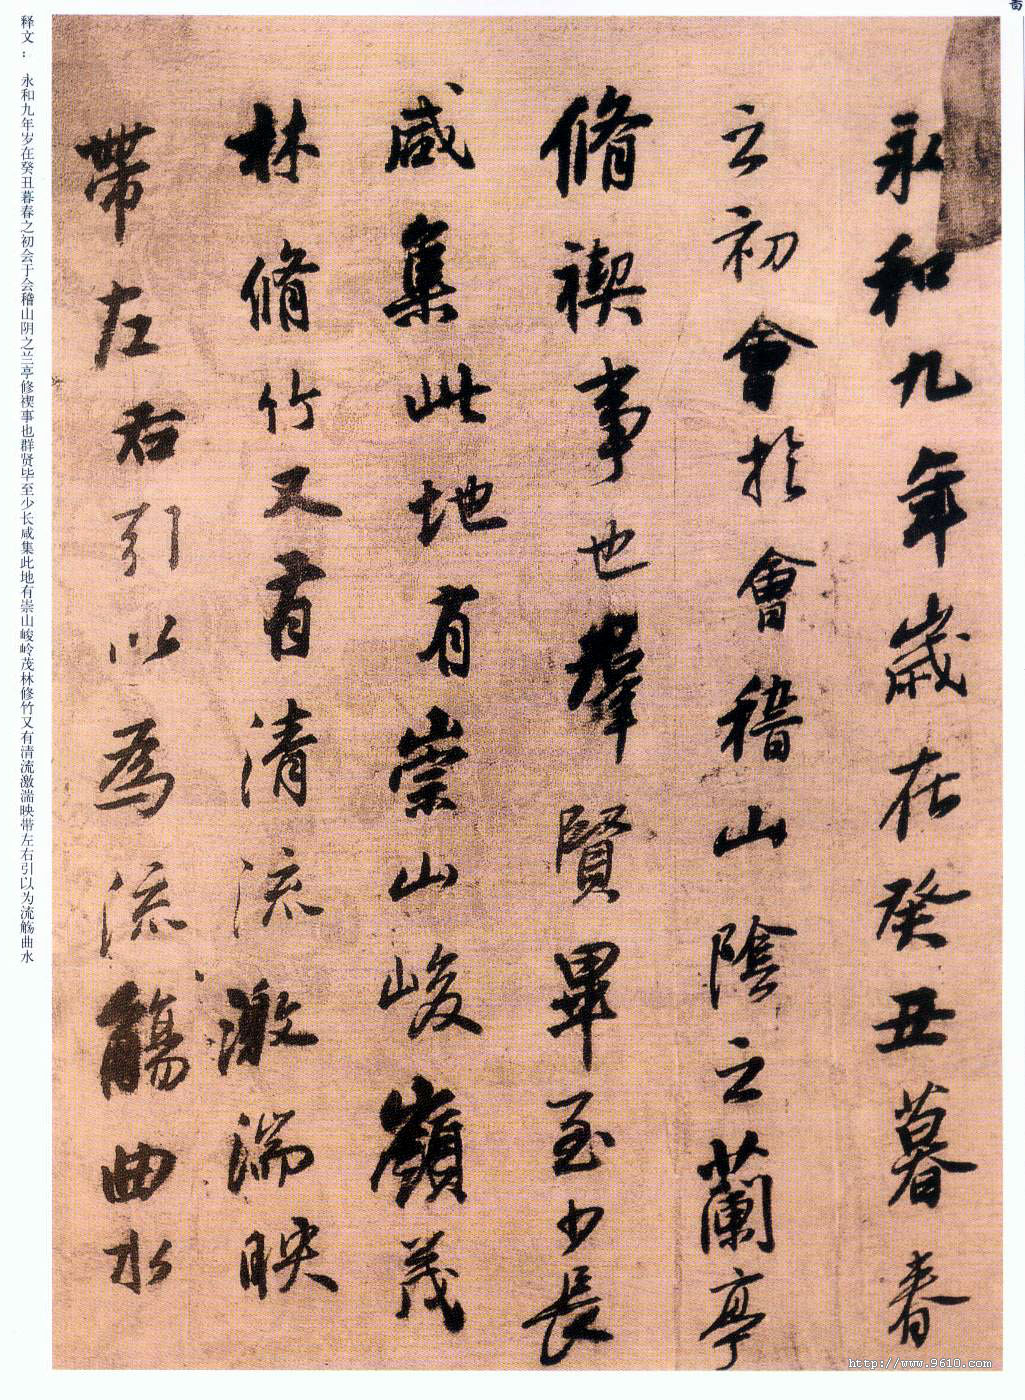 永和九年歲在癸丑暮春
之初會於會稽山陰之蘭亭
脩禊事也羣賢畢至少長
咸集此地有崇山峻嶺茂
林脩竹又有清流激湍映
帶左右引以為流觴曲水
释文： 永和九年岁在癸丑暮春之初会于会稽山阴之兰亭修禊事也群贤毕至少长咸集此地有崇山峻岭茂林修竹又有清流激湍映带左右引以为流觞曲水
http://www.9610.com